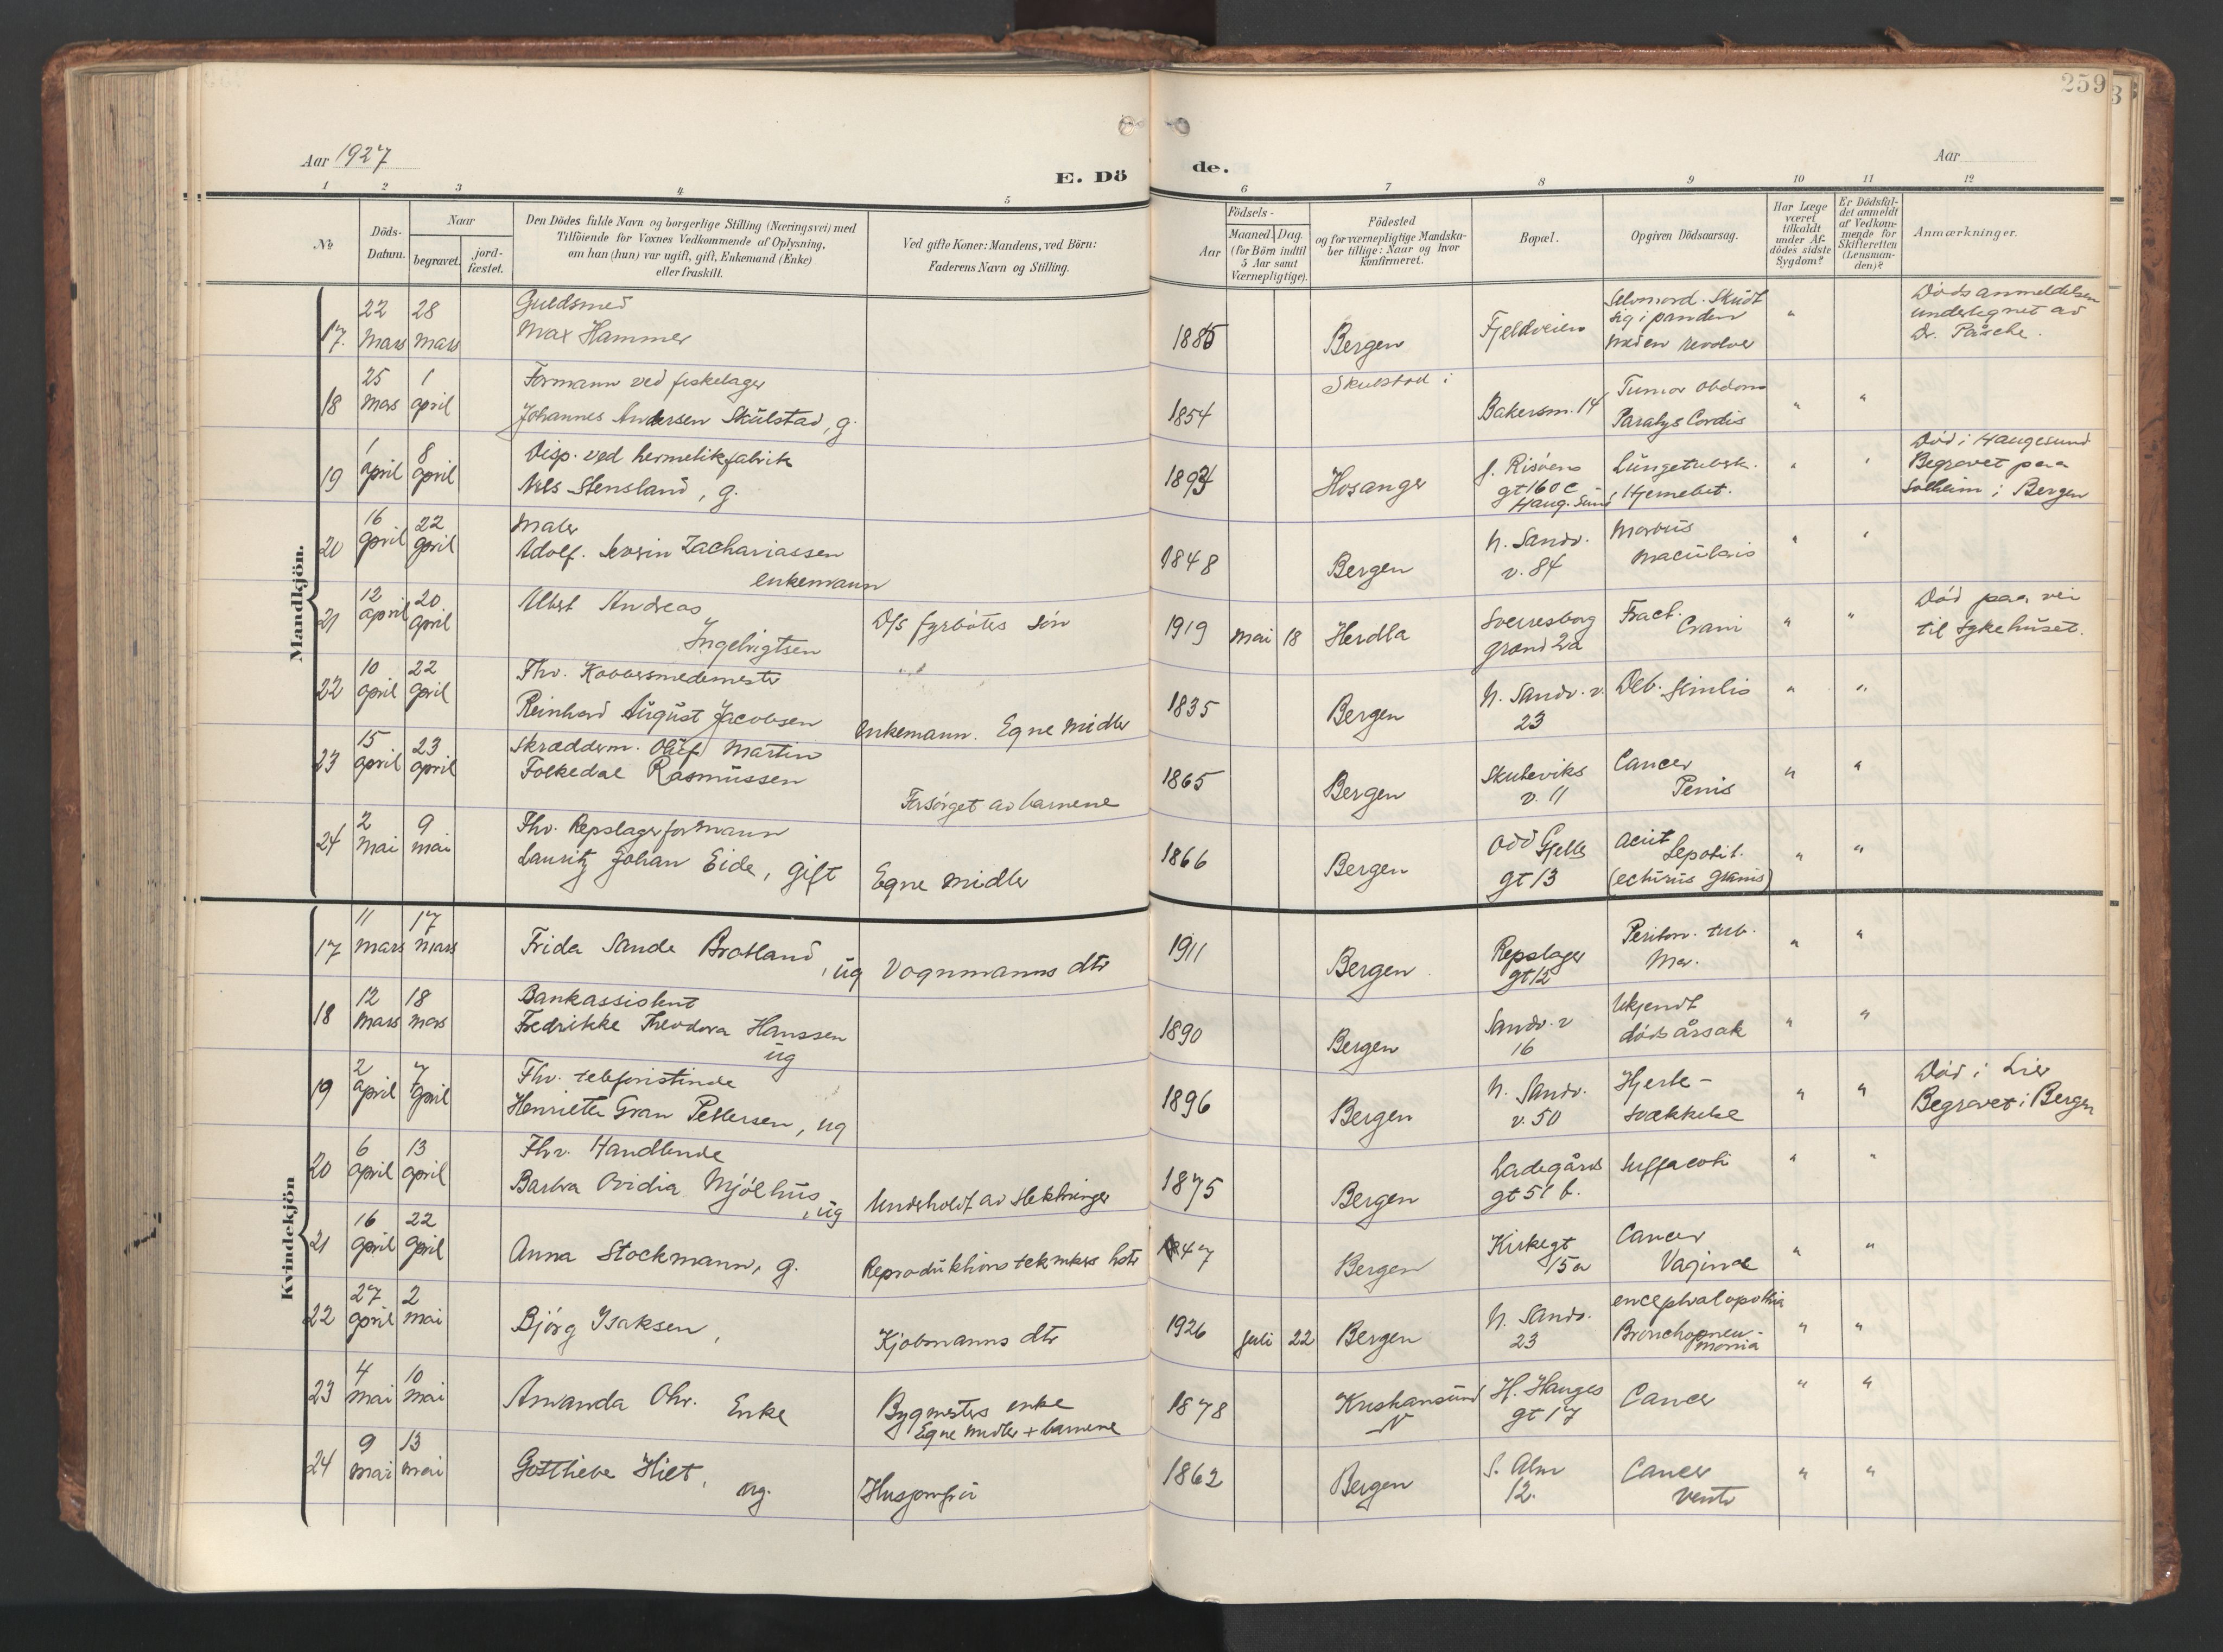 259
Aar 1927
E. Döde.
Aar
1 2 3 4 5 6 7 8 9 10 11 12
No
Döds-Datum.
Naar
begravet.
jord-fæstet.
Den Dödes fulde Navn og borgerlige Stilling (Næringsvei) med
Tilföiende for Voxnes Vedkommende af Oplysning,
om han (hun) var ugift, gift, Enkemand (Enke)
eller fraskilt.
Ved gifte Koner: Mandens, ved Börn:
Faderens Navn og Stilling.
Födsels-
Aar
Maaned. Dag.
(for Börn indtil
5 Aar samt
Værnepligtige).
Födested
og for værnepligtige Mandska-
ber tillige: Naar og hvor
konfirmeret.
Bopæl.
Opgiven Dödsaarsag.
Har Læge
været
tilkaldt
under Af-
dödes sidste
Sygdom?
Er Dödsfal-
det anmeldt
af Vedkom-
mende for
Skifteretten
(Lensman-
den)?
Anmærkninger.
Mandkjön.
17. 22 Mars 28 Mars
Guldsmed
Max Hammer
1885 Bergen Fjeldveien
Selvmord. Skudt
sig i panden
med en revolver
"
Dödsanmeldelsen
undertegnet av
Dr. Påsche.
18 25 Mars 1 april
Formann ved fiskelager
Johannes Andersen Skulstad, g.
1854 Skulstad i Bakersm. 14
Tumor abdom
Paralys Cordis
" "
19 1 april 8 april
Disp. ved hermetikfabrik
Nils Stensland, g.
1894 Hosanger
J. Risöens
gt 160 c
Haug.sund
Lungetuberk.
Hjernebet.
" "
Död i Haugesund
Begravet paa
Solheim i Bergen
20 16 april 22 april
Maler
Adolf. Severin Zachariassen
enkemann
1848 Bergen
N. Sandv.
v. 84
Morbus
maculosis
" "
21 12 april 20 april
Albert Andreas
Ingebrigtsen
D/s fyrböters sön
1919 Mai 18 Herdla
Sverresborg
grand 2a
Fract.
Crani
" "
Död paa vei
til sykehuset.
22 10 april 22 april
Fhv. Kobbersmedemester
Reinhard August Jacobsen
Enkemann. Egne midler
1835 Bergen
N. Sandv. v.
23
Deb. senilis
" "
23 15 april 23 april
Skrædderm. Oluf Martin
Folkedal Rasmussen
Forsörget av barnene
1865 Bergen
Skuteviks
v. 11
Cancer
Penis
" "
24 2 mai 9 mai
Fhv. Repslagerformann
Lauritz Johan Eide, gift
Egne midler
1866 Bergen
Odd Gjells
gt 13
Acut
" "
Kvindekjön
17 11 mars 17 mars
Frida Sande Brotland, ug
Vognmanns dtr
1911 Bergen.
Repslager
gt 12
Periton. tub.
" "
18 12 mars 18 mars
Bankassistent
Fredrikke Theodora Hanssen
ug
1890 Bergen
Sandv. v
16
Ukjendt
dödsårsak
" "
19 2 april 7 april
Fhv. telefonistinde
Henriette Gran Pettersen, ug
1896 Bergen
N. Sandv.
v. 50
Hjerte-
svækkelse
" "
Död i Lier
Begravet i Bergen
20 6 april 13 april
Fhv. Handlende
Barbra Ovidia Mjölhus, ug
Underholdt av slektninger
1875 Bergen
Ladegårds
gt 51 b.
Suffacoti
" "
21 16 april 22 april
Anna Stockmann, g.
Reproduktions teknikers hstr
1847 Bergen
Kirkegt
15a
Cancer
Vaginae
" "
22 27 april 2 mai
Björg Isaksen,
Kjöbmanns dtr
1926 Juli 22 Bergen
N. Sandv.
23
encephalopathia
Bronchopneu-
monia
" "
23 4 mai 10 mai
Amanda Ohr. Enke
Bygmesters enke
Egne midler + barnene
1878 Kristiansund
N
H. Hauges
gt 17
Cancer
" "
24 9 mai 13 mai
Gottliebe Hilt, ug.
Husjomfru
1862 Bergen
S. Alm
12.
Cancer
ventr
" "